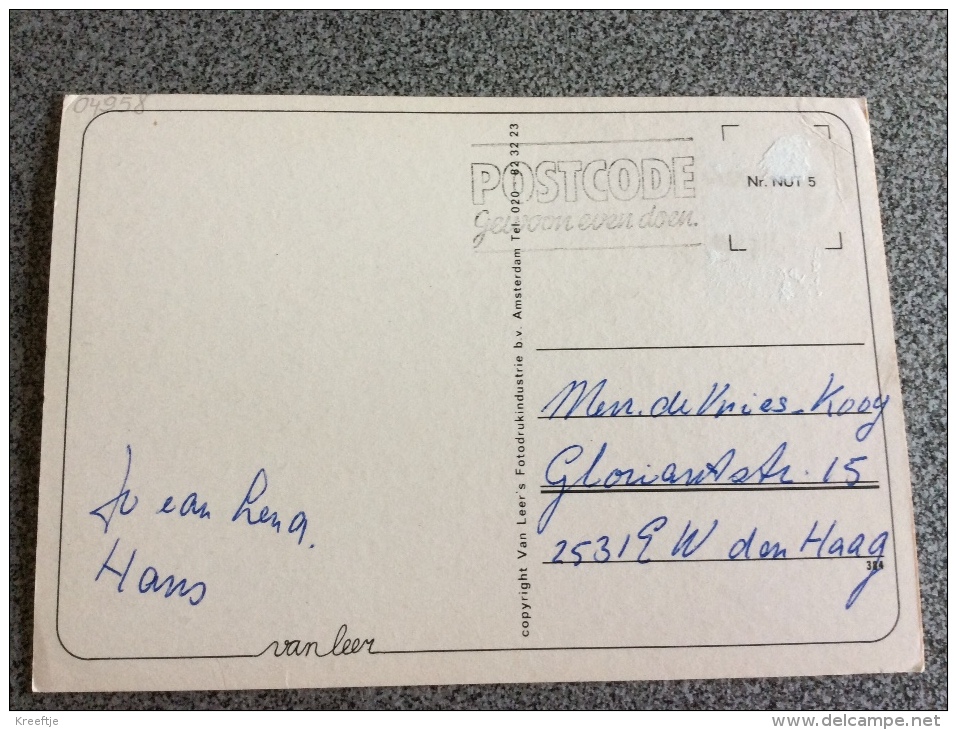 04958
POSTCODE
gewoon even doen.
Nr. NUT 5
copyright Van Leer's Fotodrukindustrie b.v. Amsterdam Tel. 020 - 82 32 23
Mevr. de Vries - Kooy
Gloriantstr. 15
2531 EW den Haag
384
Jo ean Lena.
Hans
van leer
Kreeftje
www.delcampe.net